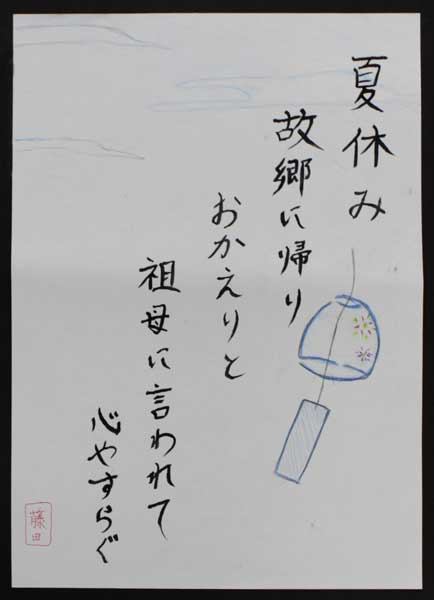 夏休み
故郷に帰り
おかえりと
祖母に言われて
心やすらぐ
藤田